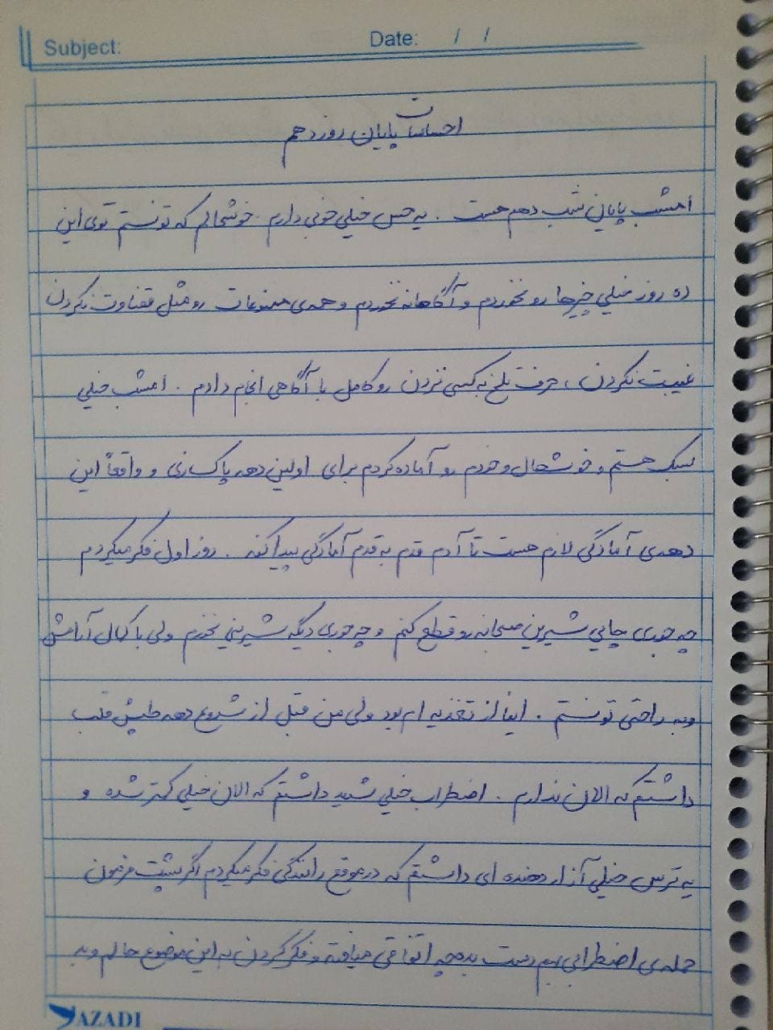 Subject:
Date: / /
احساسات پایان روز دهم
امشب پایان شب دهم هست . یه حس خیلی خوبی دارم . خوشحالم که تونستم توی این
ده روز خیلی چیزها رو نخوردم و آگاهانه نخوردم و همه‌ی ممنوعات رو مثل قضاوت نکردن
غیبت نکردن ، حرف تلخ به کسی نزدن رو کامل با آگاهی انجام دادم . امشب خیلی
سبک هستم و خوشحال و خودم رو آماده کردم برای اولین دهه پاکسازی و واقعاً این
دهه‌ی آمادگی لازم هست تا آدم قدم به قدم آمادگی پیدا کنه . روز اول فکر میکردم
چه جوری چایی شیرین صبحانه رو قطع کنم و چه جوری دیگه شیرینی نخورم ولی با کمال آرامش
و به راحتی تونستم . اینا از تغذیه ام بود ولی من قبل از شروع دهه طپش قلب
داشتم که الان ندارم . اضطراب خیلی شدید داشتم که الان خیلی کمتر شده و
یه ترس خیلی آزار دهنده ای داشتم که در موقع رانندگی فکر میکردم اگر پشت فرمون
حمله‌ی اضطرابی بهم دست بده چه اتفاقی میافته و فکر کردن به این موضوع حالم رو بد
AZADI